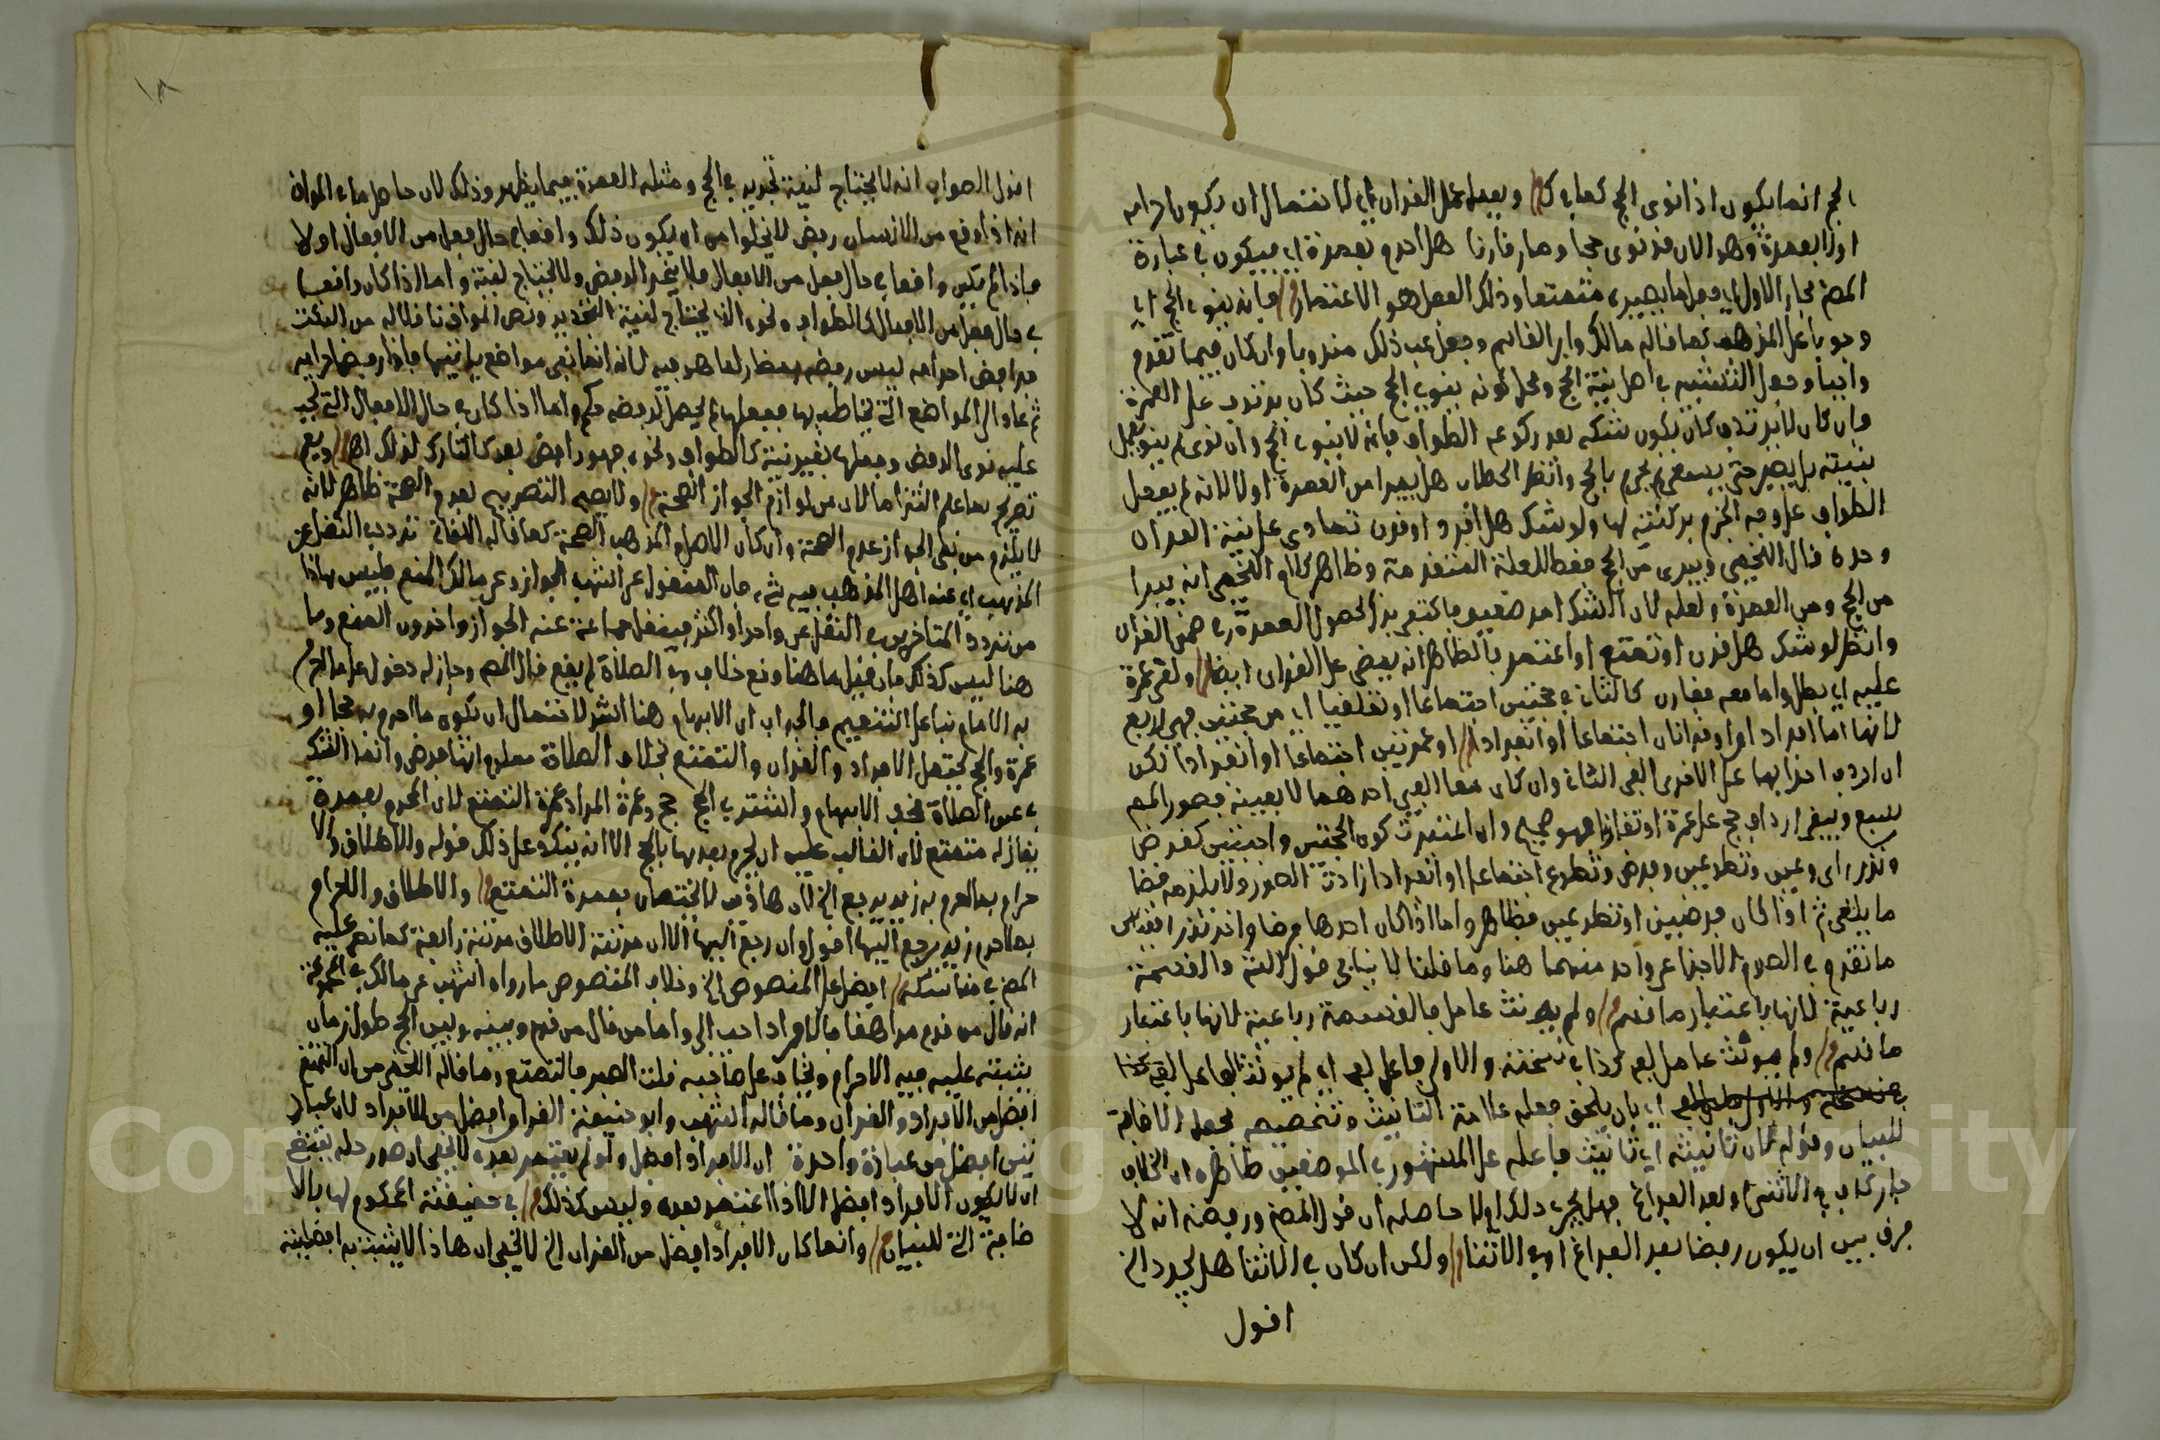 الحج انما يكون اذا نوى الحج كما في ك/ ويعمل عمل القران اي لاحتمال ان يكون احرامه
اولا بعمرة وهو الان قد نوى حجا وصار قارنا هل احرم بعمرة اي فيكون في عبارة
المص مجاز الاول اي فعل ما يصير به متمتعا وذلك الفعل هو الاعتمار/ فانه ينوي الحج اي
وجوبا على المذهب كما قاله مالك وابن القاسم وجعل عب ذلك مندوبا وان كان فيما تقدم
واجبا وجعل التشبيه في اصل نية الحج ومحل كونه ينوي الحج حيث كان يرتدف على العمرة
فان كان لا يرتدف كان يكون شكه بعد ركوع الطواف فانه لا ينوي الحج وان نوى لم ينو بعمل
بنيته بل يصير حتى يسعى ثم يحرم بالحج وانظر الحطاب هل يبرا من العمرة او لا لانه لم يفعل
الطواف على وجه الجزم بركنيته لها ولو شك هل افرد او قرن تمادى على نية القران
وحده قال اللخمي ويبرى من الحج فقط للعلة المتقدمة وظاهر كلام اللخمي انه يبرا
من الحج ومن العمرة ولعله لان الشك امر ضعيف فاكتفي بذا لحصول العمرة في ضمن القران
وانظر لو شك هل قرن او تمتع او اعتمر فالظاهر انه يمضي على القران ايضا/ ولغى عمرة
عليه اي بطل واما معه فقارن كالثاني في حجتين اجتماعا او تعاقبا اي من حجتين فهي اربع
لانها اما افراد او قرانان اجتماعا او انفرادا/ او عمرتين اجتماعا او انفرادا لكن
ان اردف احرابها على الاخرى الغي الثاني وان كان معا الغي احدهما لا بعينه فصور المص
سبع ويبقى ارداف حج على عمرة او تقارنا فهو صحيح وان اعتبرت كون الحجتين واجبتين كفرض
ونذر اي وعين وتطوعين وفرض وتطوع اجتماعا او انفرادا زادت الصور ولا يلزمه قضا
ما يلغى ثم اذا كان فرضين او تطوعين فظاهر واما اذا كان احدها فرضا واخر نذر اقتدى
ما تقدم في الصوم الاجزا عن واحد منهما هنا وما قلنا لا ينافي قول الش والقسمة
رباعية لانها باعتبار ما قسم/ ولم يونث عامل فالقسمة رباعية لانها باعتبار
ما قسم/ ولم يونث عامل لغي كذا في نسخته والاولى فاعل لغي اي لم يونث الفاعل لغي
اي بان يلحق فعله علامة التانيث وتخصيصه بجعل الاضافة
للبيان وقوله لان تانيثه اي تانيث فاعله على المشهور في الموضعين ظاهره ان الخلاف
جار كان في الاثنا او بعد الفراغ فهل يجري ذلك اولا حاصله ان قول المص ورفضه انه لا
فرق بين ان يكون رفضا بعد الفراغ او في الاثنا/ ولكن ان كان في الاثنا هل يجدد الخ
اقول
١٨
اقول الصواب انه لا يحتاج لنية تجديد في الحج ومثله العمرة فيما يظهر وذلك لان حاصل ما في المواق
انه اذا وقع من الانسان رفض لا يخلوا من ان يكون ذلك واقعا في حال فعل من الافعال او لا
فاذا لم يكن واقعا في حال فعل من الافعال فلا يضر الرفض ولا يحتاج لنية واما اذا كان واقعا
في حال فعل من الافعال كالطواف ونحوه الذي يحتاج لنية التجديد ونص المواق نا قلا له من النكت
من رفض احرامه ليس رفضه بضار لما هو فيه لانه انما بقي مواضع ياتيها فاذا رفض احرامه
ثم عاد الى المواضع التي يخاطب بها ففعلها لم يحصل لرفضه حكم واما اذا كان في حال الافعال التي تجب
عليه نوى الرفض وفعلها بغير نية كالطواف ونحوه فهو رافض يعد كالتارك لذلك اهـ/ ويع
تصريح بما علم التزاما لان من لوازم الجواز الصحة/ ولا يصح التصريح بعدم الصحة ظاهر لانه
لا يلزم من نفي الجواز عدم الصحة وان كان الاصل في المذهب الصحة كما قاله اللقاني تردد في النقل عن
المذهب اي عند اهل المذهب فيه شي فان المنقول عن اشهب الجواز وعن مالك المنع فليس هذا
من تردد المتاخرين في النقل عن واحد او اكثر فينقل جماعة عنه الجواز واخرون المنع وما
هنا ليس كذلك فان قيل ما هنا وقع خلاف وفي الصلاة لم يقع قال المص وجاز له دخول على ما احرم
به الامام بنا على التتميم فالجواب ان الابهام هنا اشد لاحتمال ان يكون ما احرم به حجا او
عمرة والحج يحتمل الافراد والقران والتمتع بخلاف الصلاة معلوم انها فرض وانما الشك
في عين الصلاة فخف الابهام والشتري الحج حج وعمرة المراد عمرة التمتع لان المحرم بعمرة
يقال له متمتع لان الغالب عليه ان يحرم بعدها بالحج الا انه ينكد على ذلك قوله والاطلاق والا
حرام بما احرم به زيد يرجع الخ لان هذين لا يختصان بعمرة التمتع/ والاطلاق والاحرام
بما احرم زيد يرجع اليها اقول وان رجع اليها الا ان مرتبة الاطلاق مرتبة رابعة كما نص عليه
المص في مناسكه/ افضل على المنصوص الخ وخلاف المنصوص ما رواه اشهب عن مالك في المجموعة
انه قال من قدم مراهقا فالافراد احب الي واما من قال من قدم وبينه وبين الحج طول زمان
يشتد عليه فيه الاحرام ويخاف على صاحبه قلت الصبر فالتمتع وما قاله اللخمي من ان التمتع
افضل من الافراد والقران وما قاله اشهب وابو حنيفة القران افضل من الافراد لان عباد
تين افضل من عبادة واحدة ان الافراد افضل ولو لم يعتمر بعده لا يخفى ان صور حله يقتضي
ان لا يكون الافراد افضل الا اذا اعتمر بعده وليس كذلك/ في حقيقته المحكوم لها بالا
ضافة التي للبيان/ وانما كان الافراد افضل من القران الخ لا يخفى ان هذا لا يثبت به افضليته